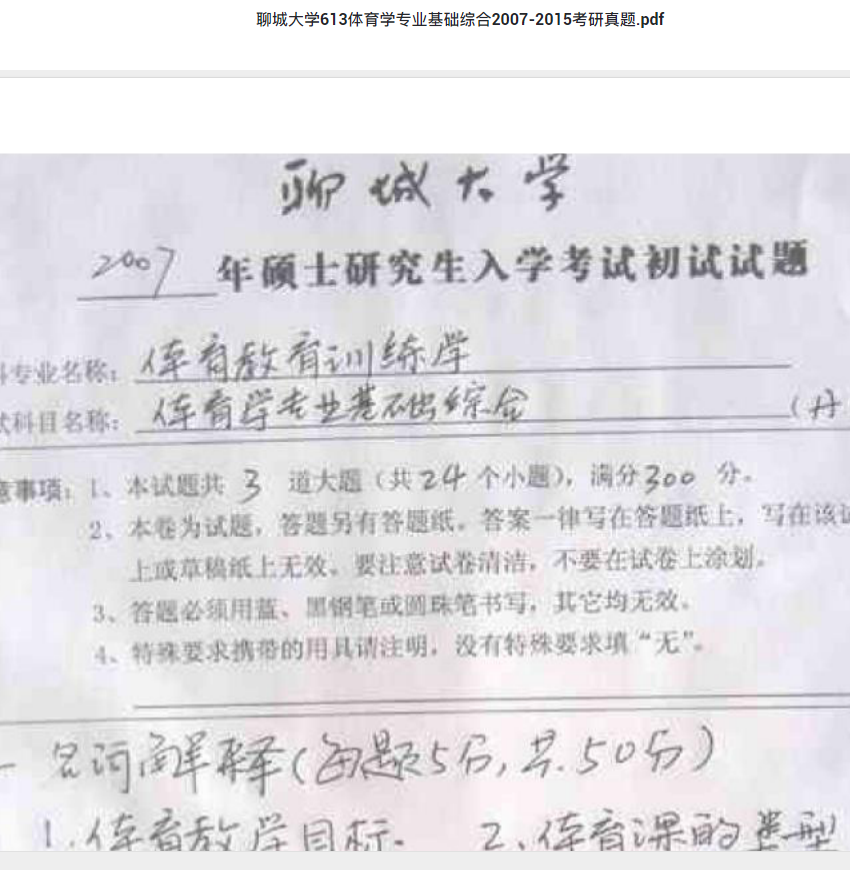 聊城大学613体育学专业基础综合2007-2015考研真题.pdf
聊城大学
2007 年硕士研究生入学考试初试试题
专业名称：体育教育训练学
科目名称：体育学专业基础综合 (
意事项：1、本试题共 3 道大题（共24个小题），满分300 分。
2、本卷为试题，答题另有答题纸。答案一律写在答题纸上，写在该试
上或草稿纸上无效。要注意试卷清洁，不要在试卷上涂划。
3、答题必须用蓝、黑钢笔或圆珠笔书写，其它均无效。
4、特殊要求携带的用具请注明，没有特殊要求填“无”。
一 名词解释(每题5分,共50分)
1.体育教学目标. 2、体育课的类型